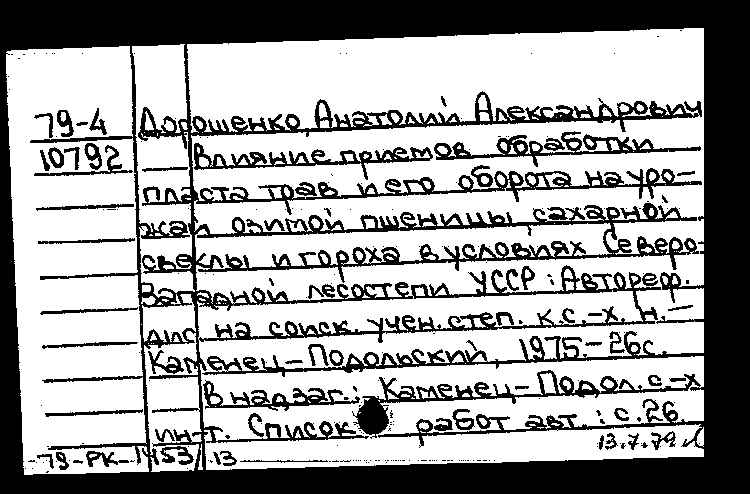 79-4 Дорошенко, Анатолий Александрович
10792 Влияние приемов обработки
пласта трав и его оборота на уро-
жай озимой пшеницы, сахарной
свеклы и гороха в условиях Северо-
Западной лесостепи УССР : Автореф.
дис на соиск. учен. степ. к.с.-х. н. –
Каменец-Подольский, 1975. – 26с.
В надзаг.: Каменец-Подол. с.-х
ин-т. Список работ авт. : с. 26.
13.7.79
79-РК-1453/13